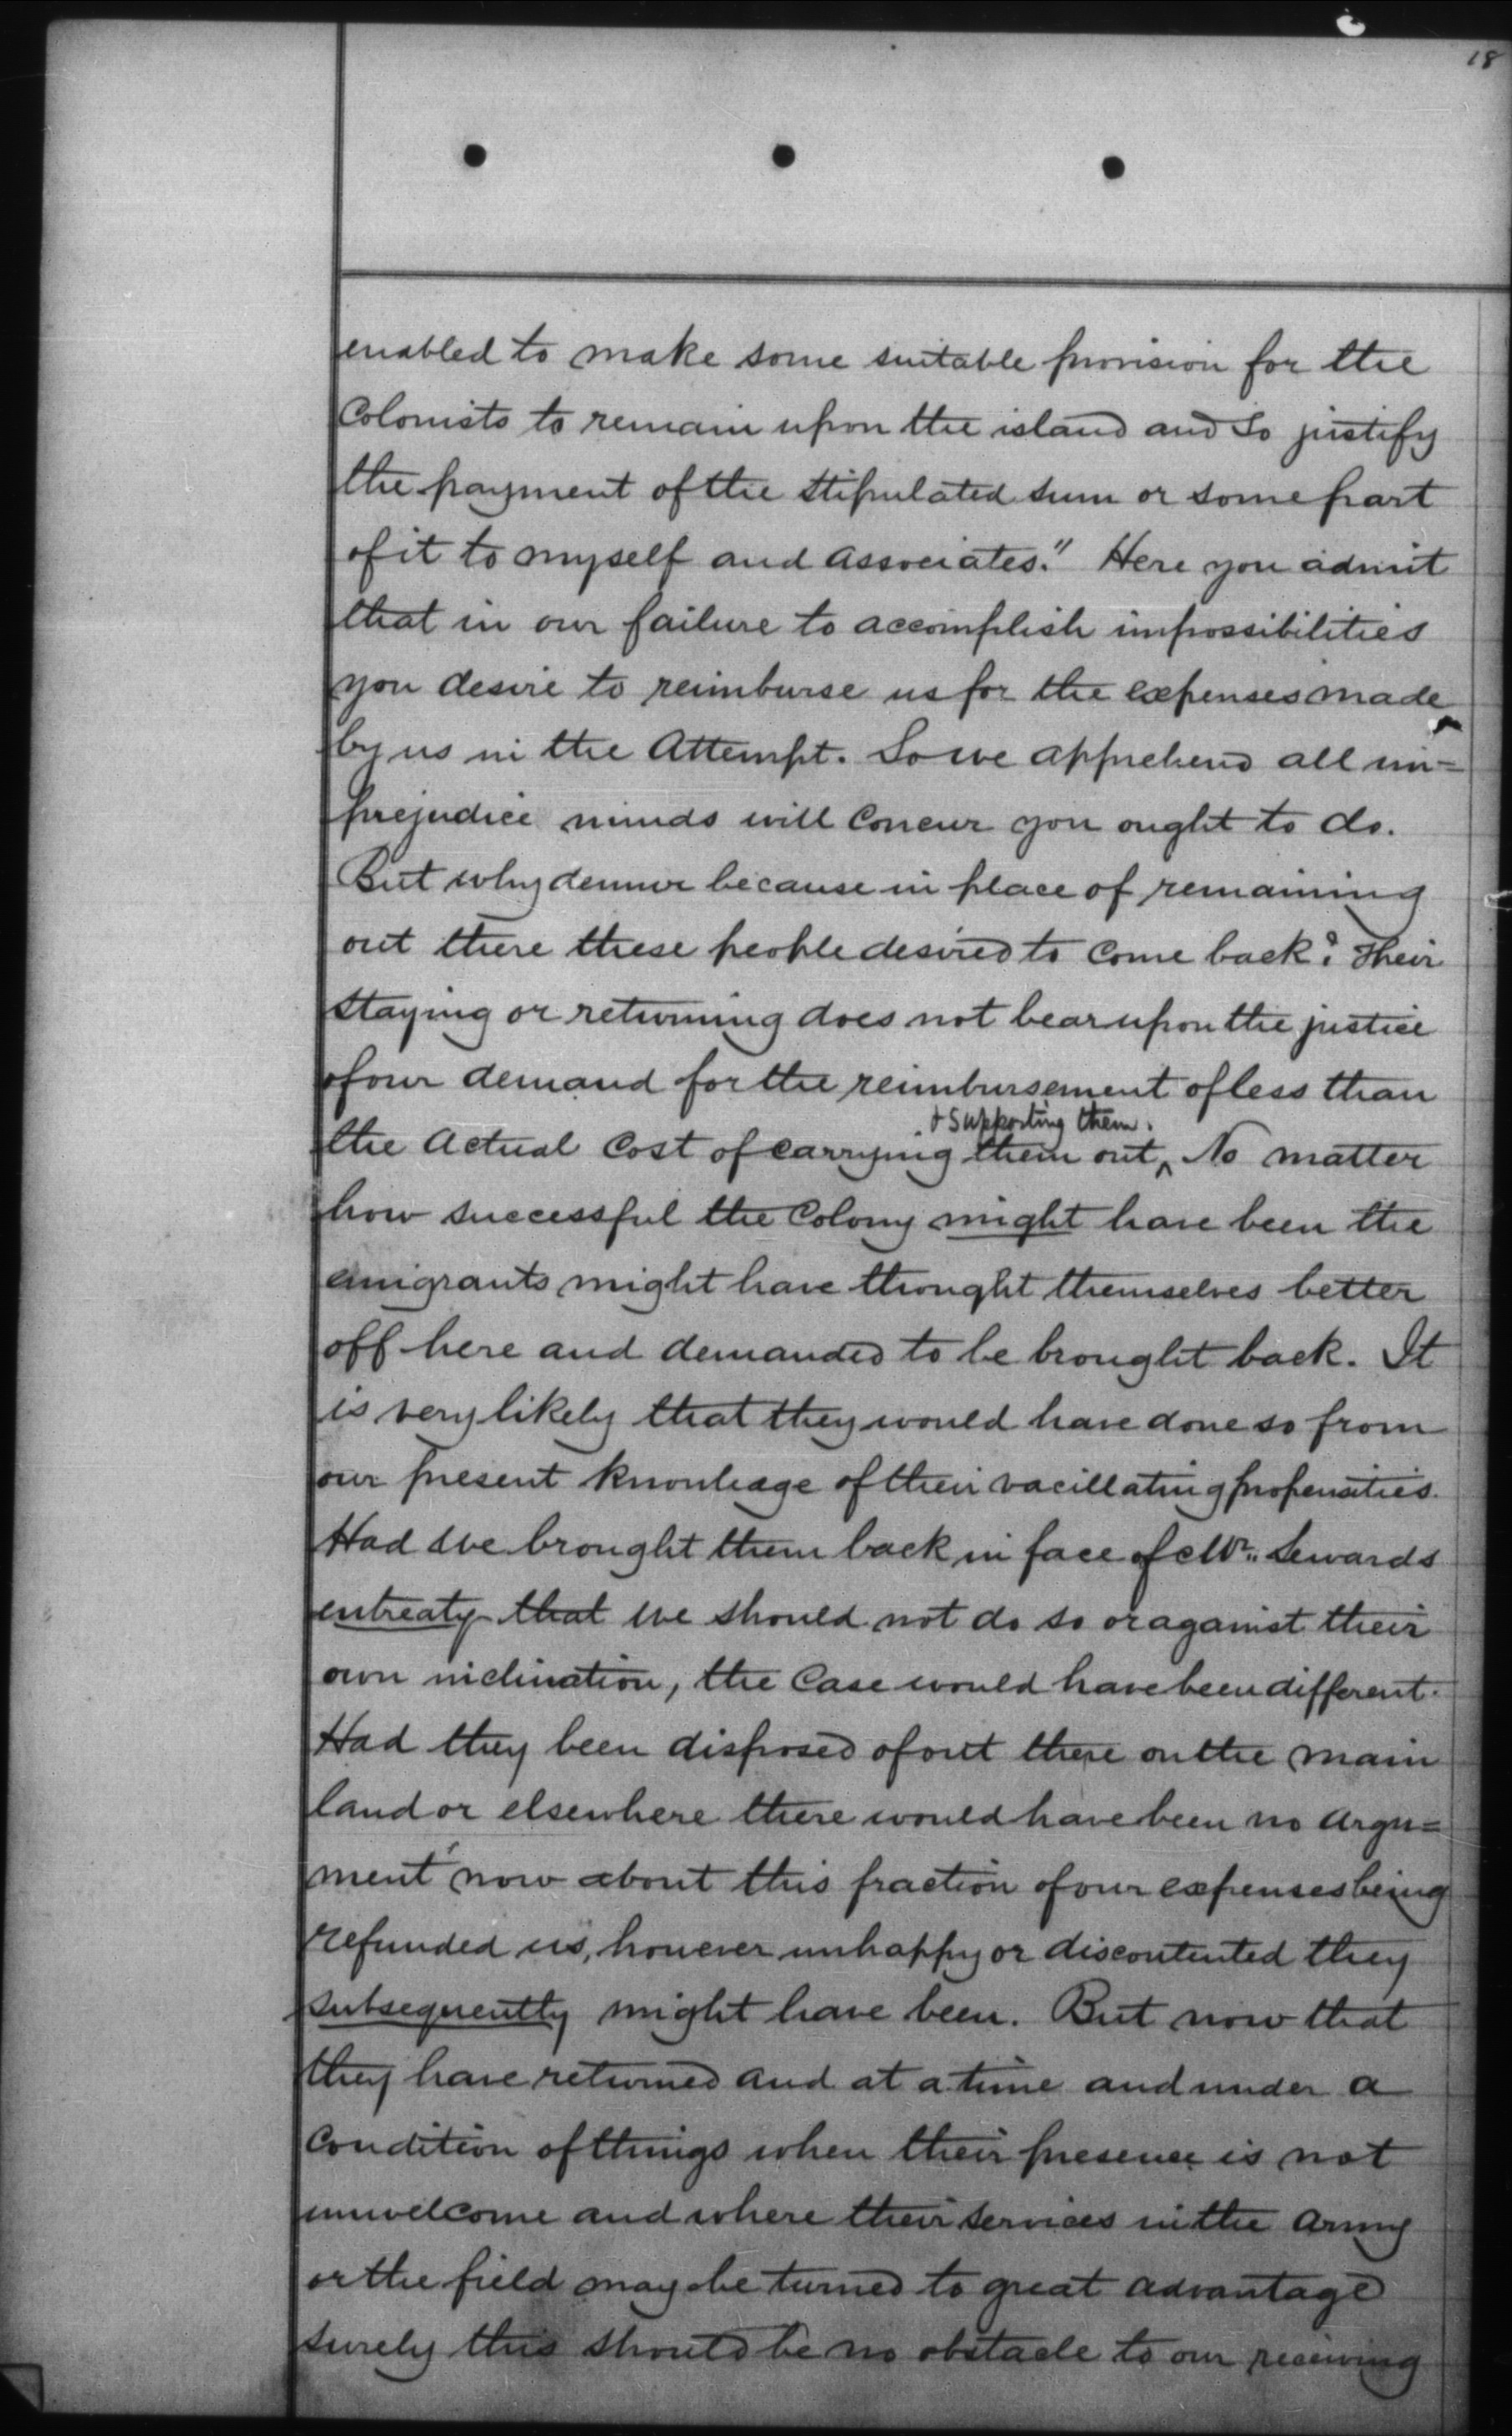 18
enabled to make some suitable provision for the
Colonists to remain upon the island and so justify
the payment of the stipulated sum or some part
of it to myself and associates." Here you admit
that in our failure to accomplish impossibilities
you desire to reimburse us for the expenses made
by us in the Attempt. So we apprehend all un=
prejudice minds will Concur you ought to do.
But why demur because in place of remaining
out there these people desired to Come back? Their
staying or returning does not bear upon the justice
of our demand for the reimbursement of less than
& supporting them.
the Actual Cost of carrying them out, No matter
how successful the Colony might have been the
emigrants might have thought themselves better
off here and demanded to be brought back. It
is very likely that they would have done so from
our present knowledge of their vacillating propensities.
Had we brought them back in face of Mr. Sewards
entreaty that we should not do so or against their
own inclination, the Case would have been different.
Had they been disposed of out there on the main
land or elsewhere there would have been no argu=
ment now about this fraction of our expenses being
refunded us, however unhappy or discontented they
subsequently might have been. But now that
they have returned and at a time and under a
Condition of things when their presence is not
unwelcome and where their services in the army
or the field may be turned to great advantage
surely this should be no obstacle to our receiving